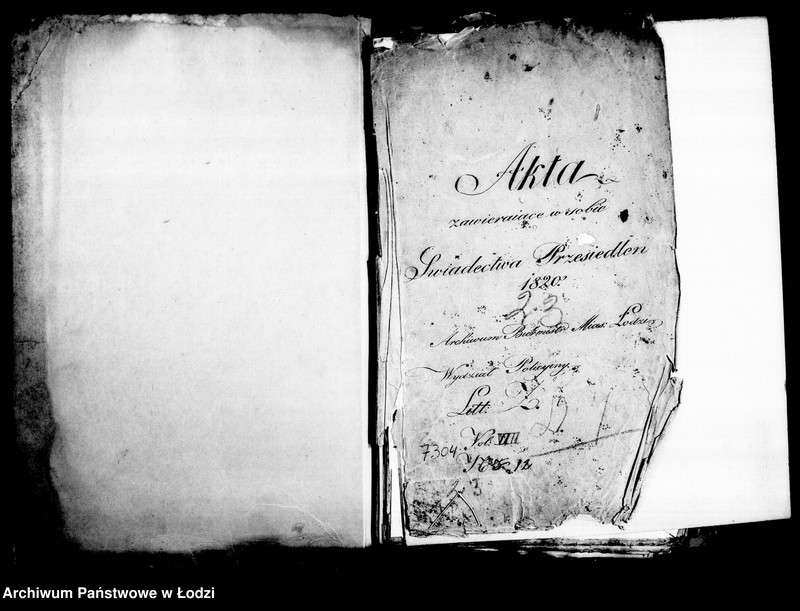 Akta
zawieraiące w sobie
Swiadectwa Przesiedlen
1820.
23
Archiwum Burmistr. Mias. Łodzi
Wydział Policyiny.
Litt. Z.
7304 Vol. VIII
12
23
Archiwum Państwowe w Łodzi